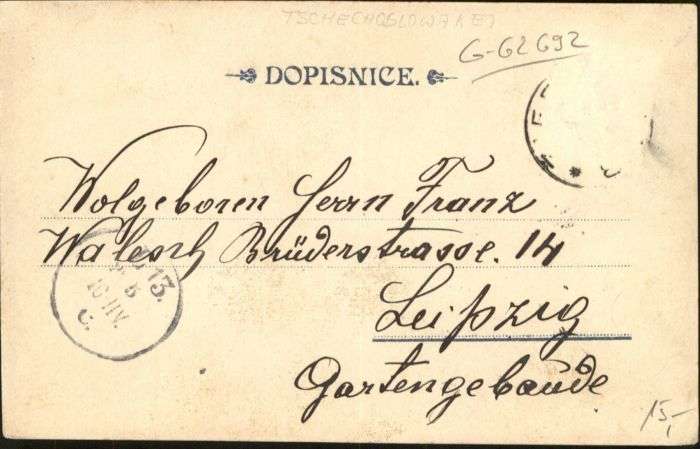 TSCHECHOSLOWAKEI
G-62692
DOPISNICE.
Wolgeboren Herrn Franz
Walesch Brüderstrasse. 14
Leipzig
Gartengebaude
15,-